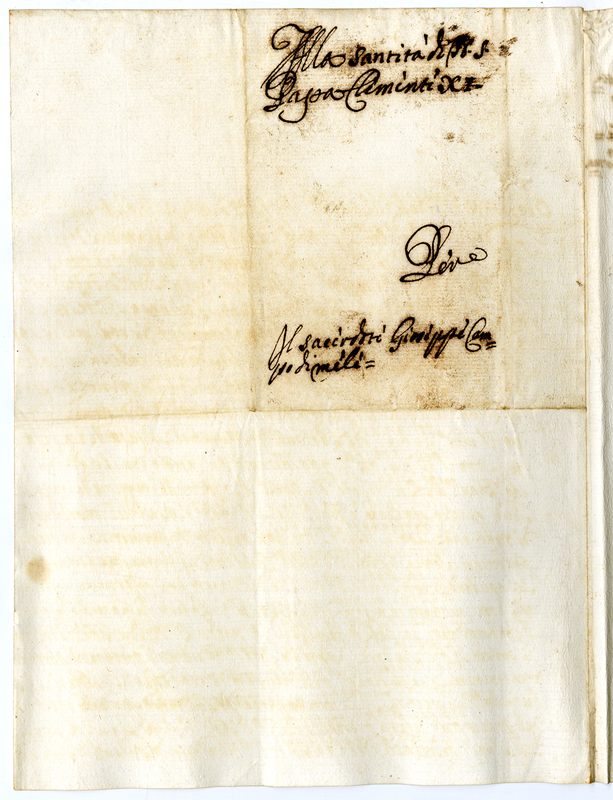 Alla santità di N. S.
Papa Clementi XI
Per
Il sacerdoti Giuseppe Cam=
po di meli=